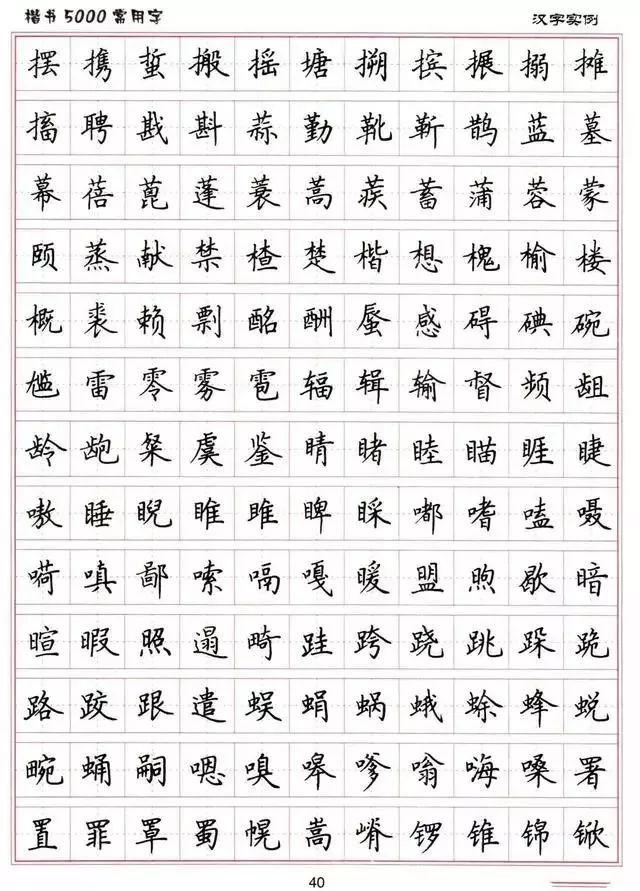 楷书5000常用字 汉字实例
摆携蜇搬摇塘搠摈搌搦摊
搐聘戡斟蒜勤靴靳鹊蓝墓
幕蓓蓖蓬蓑蒿蒺蓄蒲蓉蒙
颐蒸献禁楂楚楷想槐榆楼
概裘赖剽酩酬蜃感碍碘碗
尴雷零雾雹辐辑输督频龃
龄龅粲虞鉴睛睹睦瞄睚睫
嗷睡睨睢雎睥睬嘟嗜嗑嗫
嗬嗔鄙嗦嗝嘎暖盟煦歇暗
暄暇照遢畸跬跨跷跳跺跪
路跤跟遣蜈蜗蛾蜍蜂蜕
畹蛹嗣嗯嗅嗥嗲嗡嗨嗓署
置罪罩蜀幌嵩嵴锣锥锦锨
40